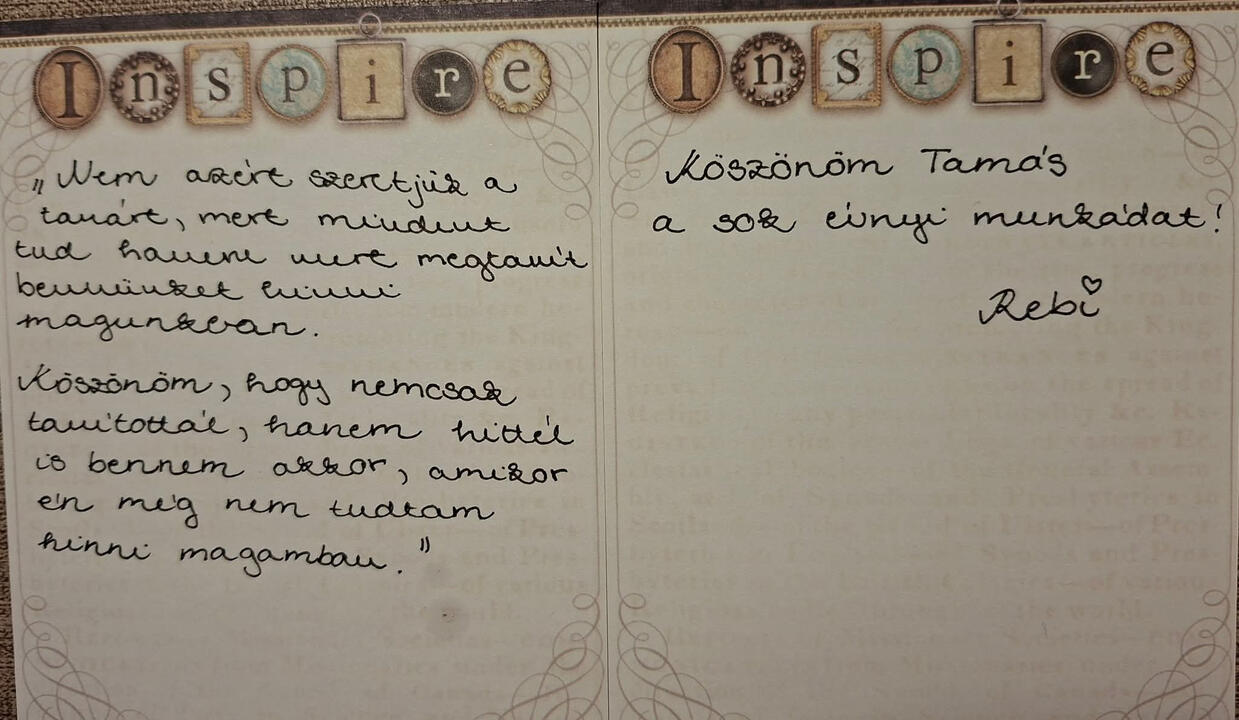 Inspire
„Nem azért szeretjük a
tanárt, mert mindent
tud hanem mert megtanít
bennünket hinni
magunkban.
Köszönöm, hogy nemcsak
tanítottál, hanem hittél
is bennem akkor, amikor
én még nem tudtam
hinni magamban."
Inspire
Köszönöm Tamás
a sok évnyi munkádat!
Rebi